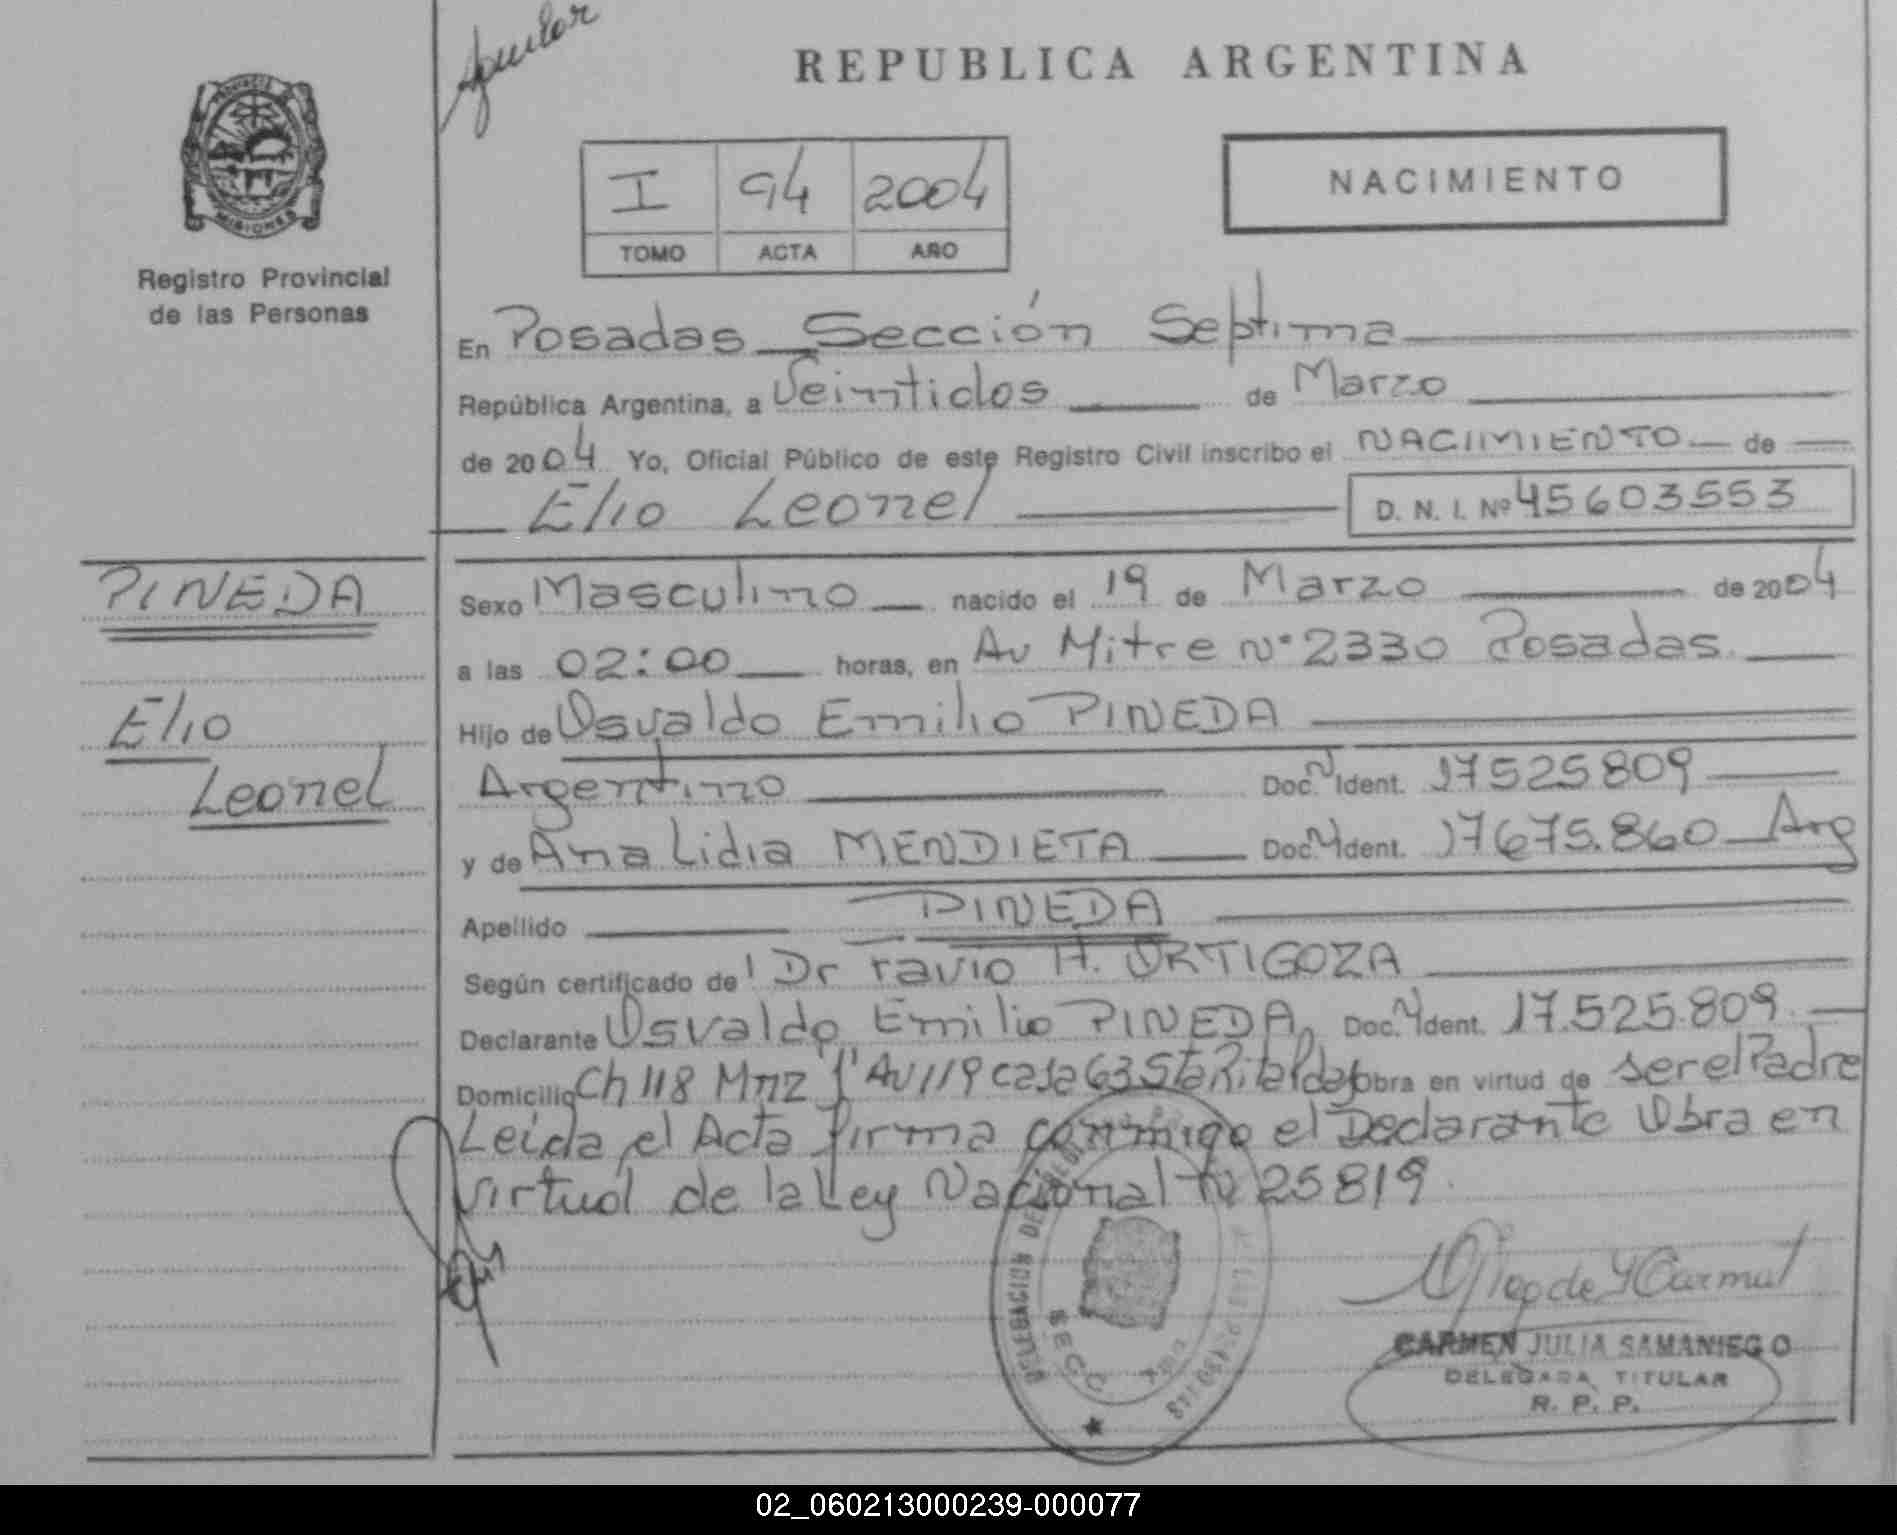 Aguilar
REPUBLICA ARGENTINA
MISIONES
Registro Provincial
de las Personas
I 94 2004
TOMO ACTA AÑO
NACIMIENTO
En Posadas Sección Septima
República Argentina, a Veintidos de Marzo
de 2004 Yo, Oficial Público de este Registro Civil inscribo el NACIMIENTO de
Elio Leonel
D. N. I. Nº 45603553
PINEDA
Elio
Leonel
Sexo Masculino nacido el 19 de Marzo de 2004
a las 02:00 horas, en Av Mitre Nº 2330 Posadas
Hijo de Osvaldo Emilio PINEDA
Argentino Doc. N Ident. 17525809
y de Ana Lidia MENDIETA Doc. N Ident. 17675.860 Arg
Apellido PINEDA
Según certificado de Dr H. ORTIGOZA
Declarante Osvaldo Emilio PINEDA Doc. N Ident. 17.525.809
Domicilio Ch 118 Mnz Av 119 casa 63 Sta Rita Pdas obra en virtud de ser el Padre
Leida el Acta firma conmigo el Declarante Obra en
virtud de la Ley Nacional Nº 25819.
DELEGACION
SECC
CARMEN JULIA SAMANIEGO
DELEGADA TITULAR
R. P. P.
02_060213000239-000077